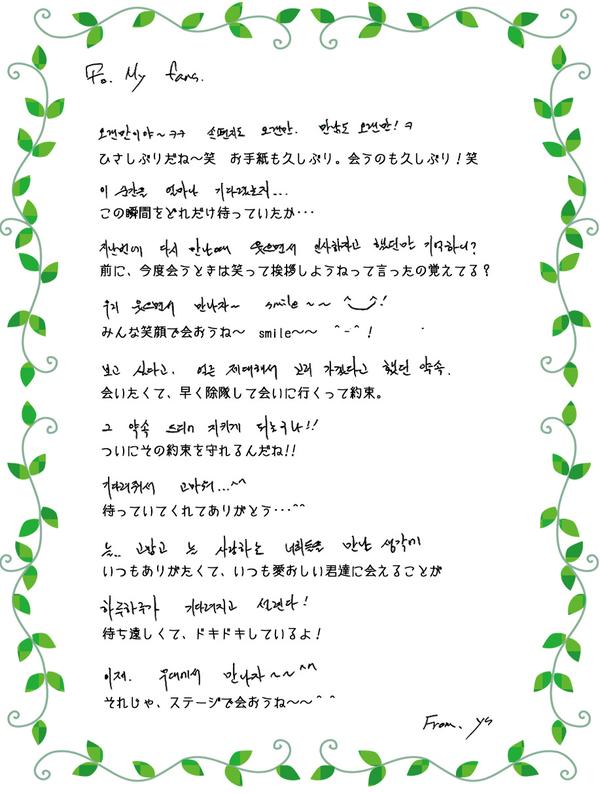 To. My fans.
오랜만이야~ㅋㅋ 손편지도 오랜만. 만남도 오랜만! ㅋ
ひさしぶりだね〜笑　お手紙も久しぶり。会うのも久しぶり！笑
이 순간을 얼마나 기다렸는지...
この瞬間をどれだけ待っていたか･･･
지난번에 다시 만날때 웃으면서 인사하자고 했던말 기억하니?
前に、今度会うときは笑って挨拶しようねって言ったの覚えてる？
우리 웃으면서 만나자~ smile ~~ ^‿^!
みんな笑顔で会おうね〜　smile〜〜　＾-＾！
보고 싶다고, 얼른 제대해서 보러 가겠다고 했던 약속.
会いたくて、早く除隊して会いに行くって約束。
그 약속 드디어 지키게 되는구나!!
ついにその約束を守れるんだね!!
기다려줘서 고마워...^^
待っていてくれてありがとう･･･^^
늘.. 고맙고 늘 사랑하는 너희들을 만날 생각에
いつもありがたくて、いつも愛おしい君達に会えることが
하루하루가 기다려지고 설렌다!
待ち遠しくて、ドキドキしているよ！
이제. 무대에서 만나자~~^^
それじゃ、ステージで会おうね〜〜＾＾
From. ys